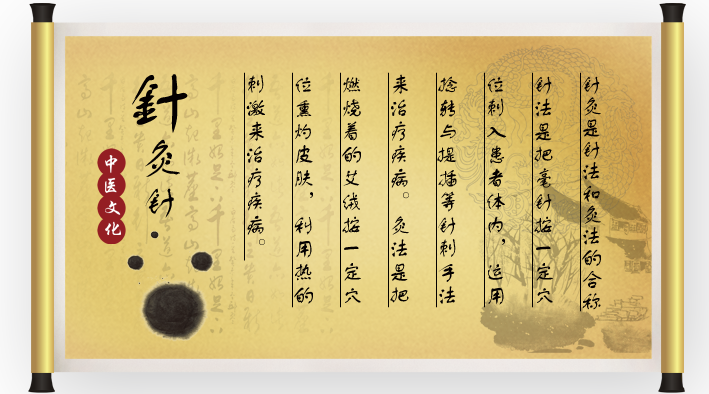 针灸是针法和灸法的合称
针法是把毫针按一定穴
位刺入患者体内，运用
捻转与提插等针刺手法
来治疗疾病。灸法是把
燃烧着的艾绒按一定穴
位熏灼皮肤，利用热的
刺激来治疗疾病。
針灸针
中医文化